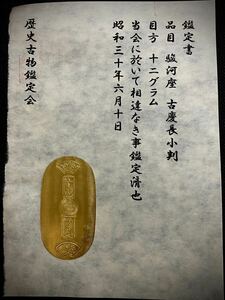 鑑定書
品目 駿河座 古慶長小判
目方 十二グラム
当会に於いて相違なき事鑑定済也
昭和三十年六月十日
歴史古物鑑定会